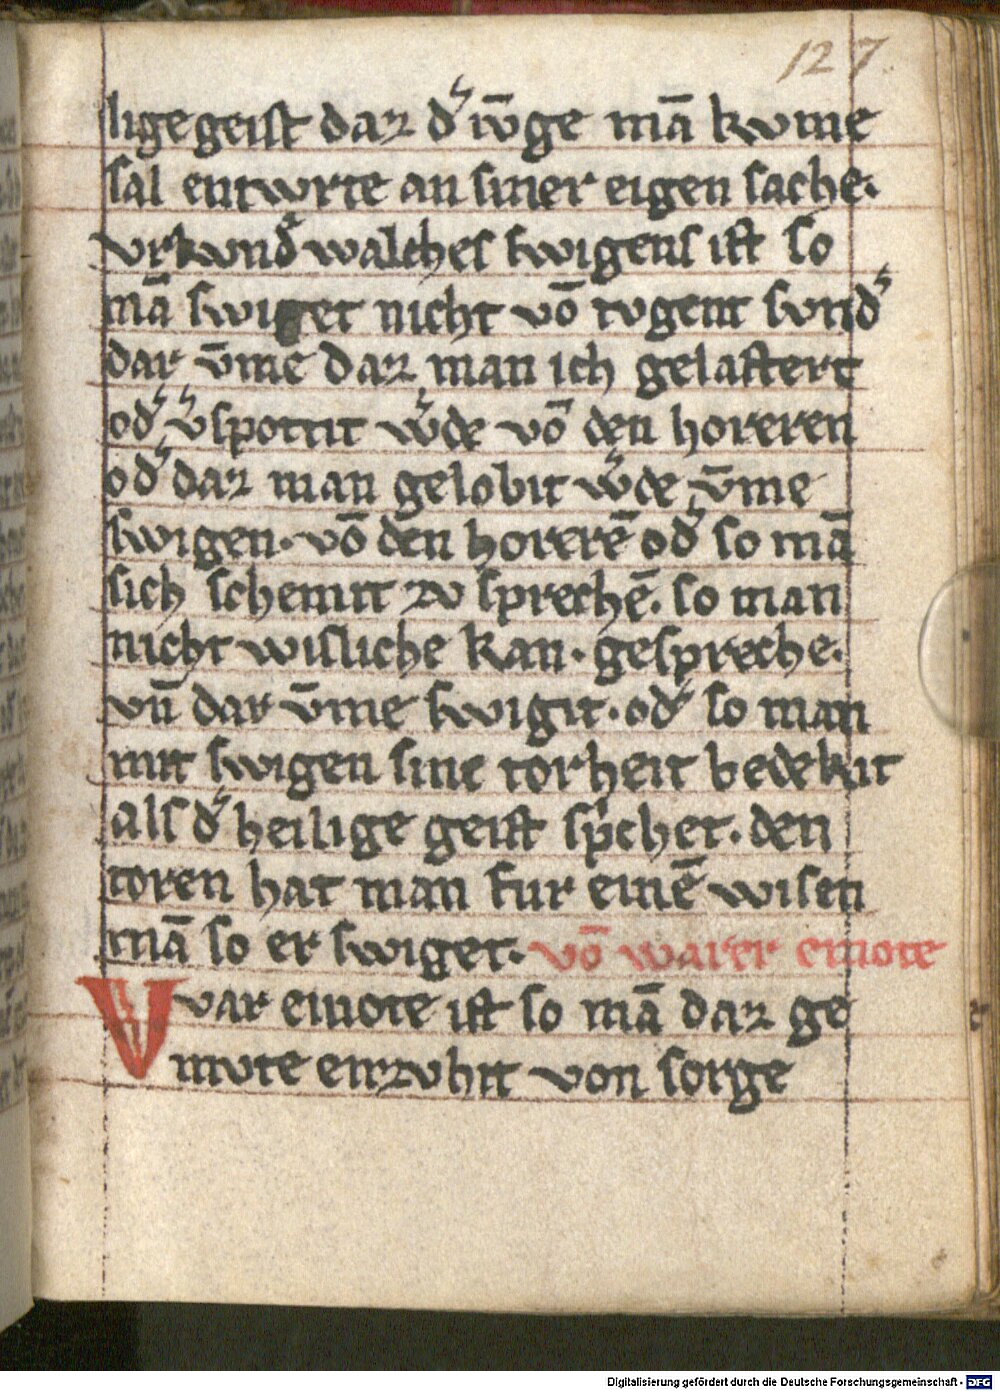 127
lige geist daz d͛ iv̄ge mā kvme
sal entwrte an siner eigen sache.
vrkvnd͛ walches swigens ist so
mā swiget nicht vō tvgent svnd͛
dar v̄me daz man ich gelastert
od͛ v͛spottit w͛de vō den horeren
od͛ daz man gelobit w͛de v̄me
swigen. vō den horerē od͛ so mā
sich schemit zv sprechē. so man
nicht wisliche kan. gespreche.
vn̄ dar v̄me swigit. od͛ so man
mit swigen sine torheit bedekit
als d͛ heilige geist sp̄chet. den
toren hat man fur einē wisen
mā so er swiget. vō warer einote
Var einote ist so mā daz ge
mvte enzvhit von sorge
Digitalisierung gefördert durch die Deutsche Forschungsgemeinschaft - DFG